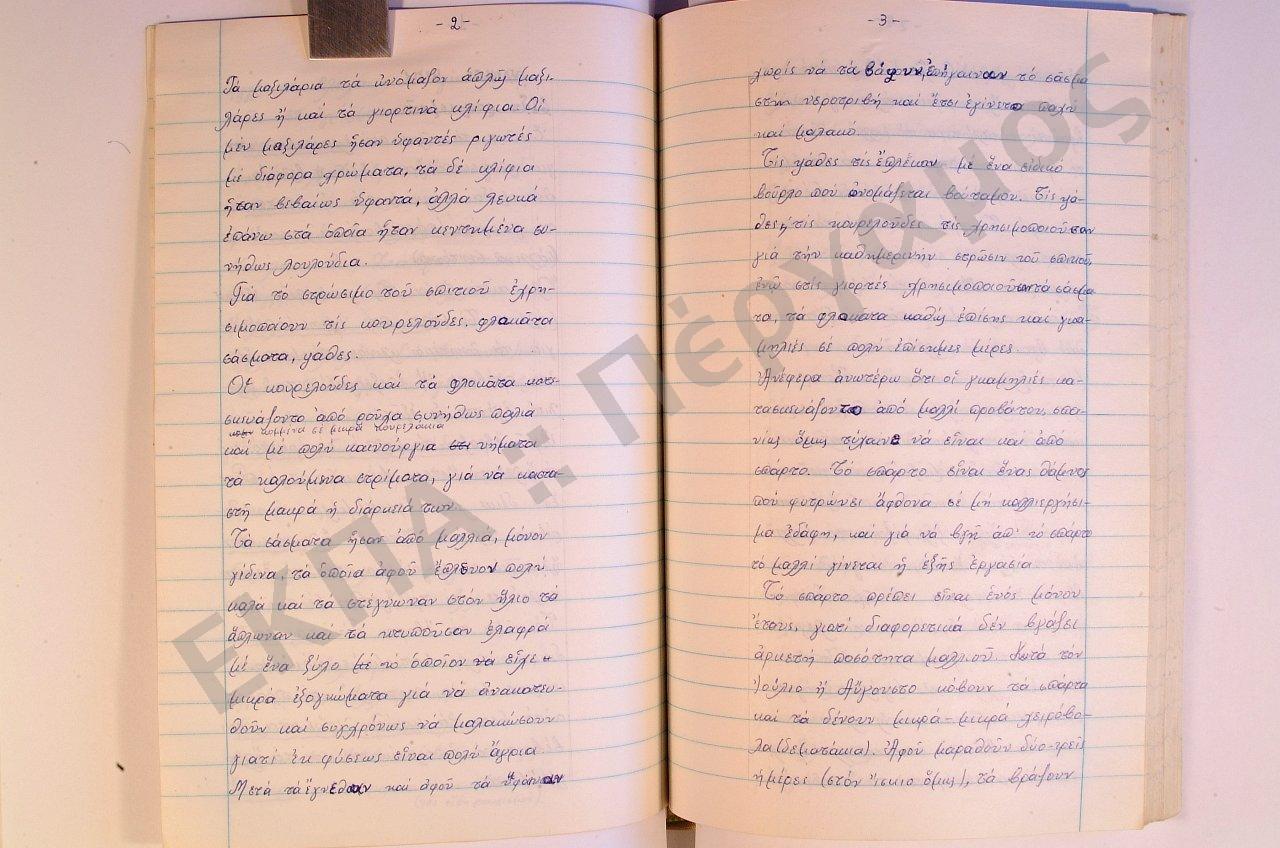 - 2 -
Τά μαξιλάρια τά ὠνόμαζον ἁπλῶς μαξι-
λάρες ἤ καί τά γιορτινά κλίφια. Οἱ
μέν μαξιλάρες ἦσαν ὑφαντές ριγωτές
μέ διάφορα χρώματα, τά δέ κλίφια
ἦταν βεβαίως ὑφαντά, ἀλλά λευκά
ἐπάνω στά ὁποῖα ἦταν κεντημένα συ-
νήθως λουλούδια.
Γιά τό στρώσιμο τοῦ σπιτιοῦ ἐχρη-
σιμοποίουν τίς κουρελοῦδες, φλοκᾶτα
σάσματα, γάθες.
Οἱ κουρελοῦδες καί τά φλοκᾶτα κατε-
σκευάζοντο ἀπό ροῦχα συνήθως παλιά
κομμένα σέ μικρά κουρελάκια
καί μέ πολύ καινούργια νήματα
τά καλούμενα στρίματα, γιά νά καστα-
στῆ μακρά ἡ διάρκειά των.
Τά σάσματα ἦσαν ἀπό μαλλιά, μόνον
γίδινα, τά ὁποῖα ἀφοῦ ἔπλενον πολύ
καλά καί τά στέγνωναν στόν ἥλιο τά
ἅπλωναν καί τά κτυποῦσαν ἐλαφρά
μέ ἕνα ξύλο μέ τό ὁποῖον νά εἶχε
μικρά ἐξογκώματα γιά νά ἀνακατευ-
θοῦν καί συγχρόνως νά μαλακώσουν
γιατί ἐκ φύσεως εἶναι πολύ ἄγρια
Μετά τά ἔγνεθαν καί ἀφοῦ τά ὕφαιναν
- 3 -
χωρίς νά τά βάφουν, ἐπήγαιναν τό σάσμα
στήν νεροτριβή καί ἔτσι ἐγίνετο παχύ
καί μαλακό.
Τίς γάθες τίς ἔπλεκαν μέ ἕνα εἰδικό
βοῦρλο πού ὀνομάζεται βούταμον. Τίς γά-
θες, τίς κουρελοῦδες τίς χρησιμοποιοῦσαν
γιά τήν καθημερινήν στρῶσιν τοῦ σπιτιοῦ,
ἐνῶ στίς γιορτές χρησιμοποιοῦσαν τά σάσμα-
τα, τά φλοκᾶτα καθώς ἐπίσης καί γκα-
μηλιές σέ πολύ ἐπίσημες μέρες.
Ἀνέφερα ἀνωτέρω ὅτι οἱ γκαμηλιές κα-
τασκευάζοντο ἀπό μαλλί προβάτου, σπα-
νίως ὅμως τύχαινε νά εἶναι καί ἀπό
σπάρτο. Τό σπάρτο εἶναι ἕνας θάμνος
πού φυτρώνει ἄφθονα σέ μή καλλιεργήσι-
μα ἐδάφη, καί γιά νά βγῆ ἀπ' τό σπάρτο
τό μαλλί γίνεται ἡ ἑξῆς ἐργασία.
Τό σπάρτο πρέπει εἶναι ἑνός μόνον
ἔτους, γιατί διαφορετικά δέν βγάζει
ἀρκετή ποσότητα μαλλιοῦ. Κατά τόν
Ἰούλιο ἤ Αὔγουστο κόβουν τά σπάρτα
καί τά δένουν μικρά-μικρά χειρόβο-
λα (δεματάκια). Ἀφοῦ μαραθοῦν δύο-τρεῖς
ἡμέρες (στόν ἴσκιο ὅμως), τά βράζουν
ΕΚΠΑ .:. Πέργαμος